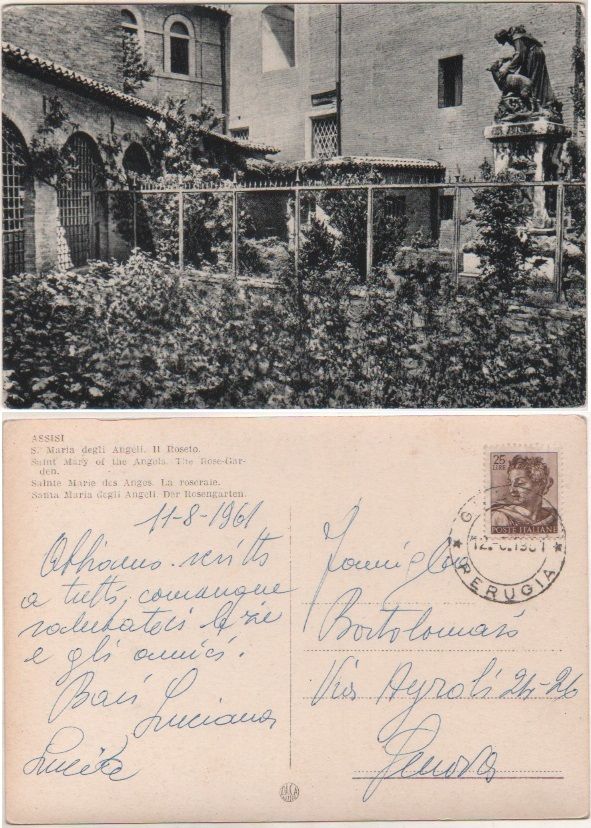 ASSISI
S. Maria degli Angeli. Il Roseto.
Saint Mary of the Angels. The Rose-Gar-
den.
Sainte Marie des Anges. La roseraie.
Santa Maria degli Angeli. Der Rosengarten.
11-8-1961
Abbiamo scritto
a tutti, comunque
salutateci le zie
e gli amici.
Baci Luciana
25
LIRE
POSTE ITALIANE
PERUGIA
Famiglia
Bortolomasó
Via Ayroli 24-26
Genova